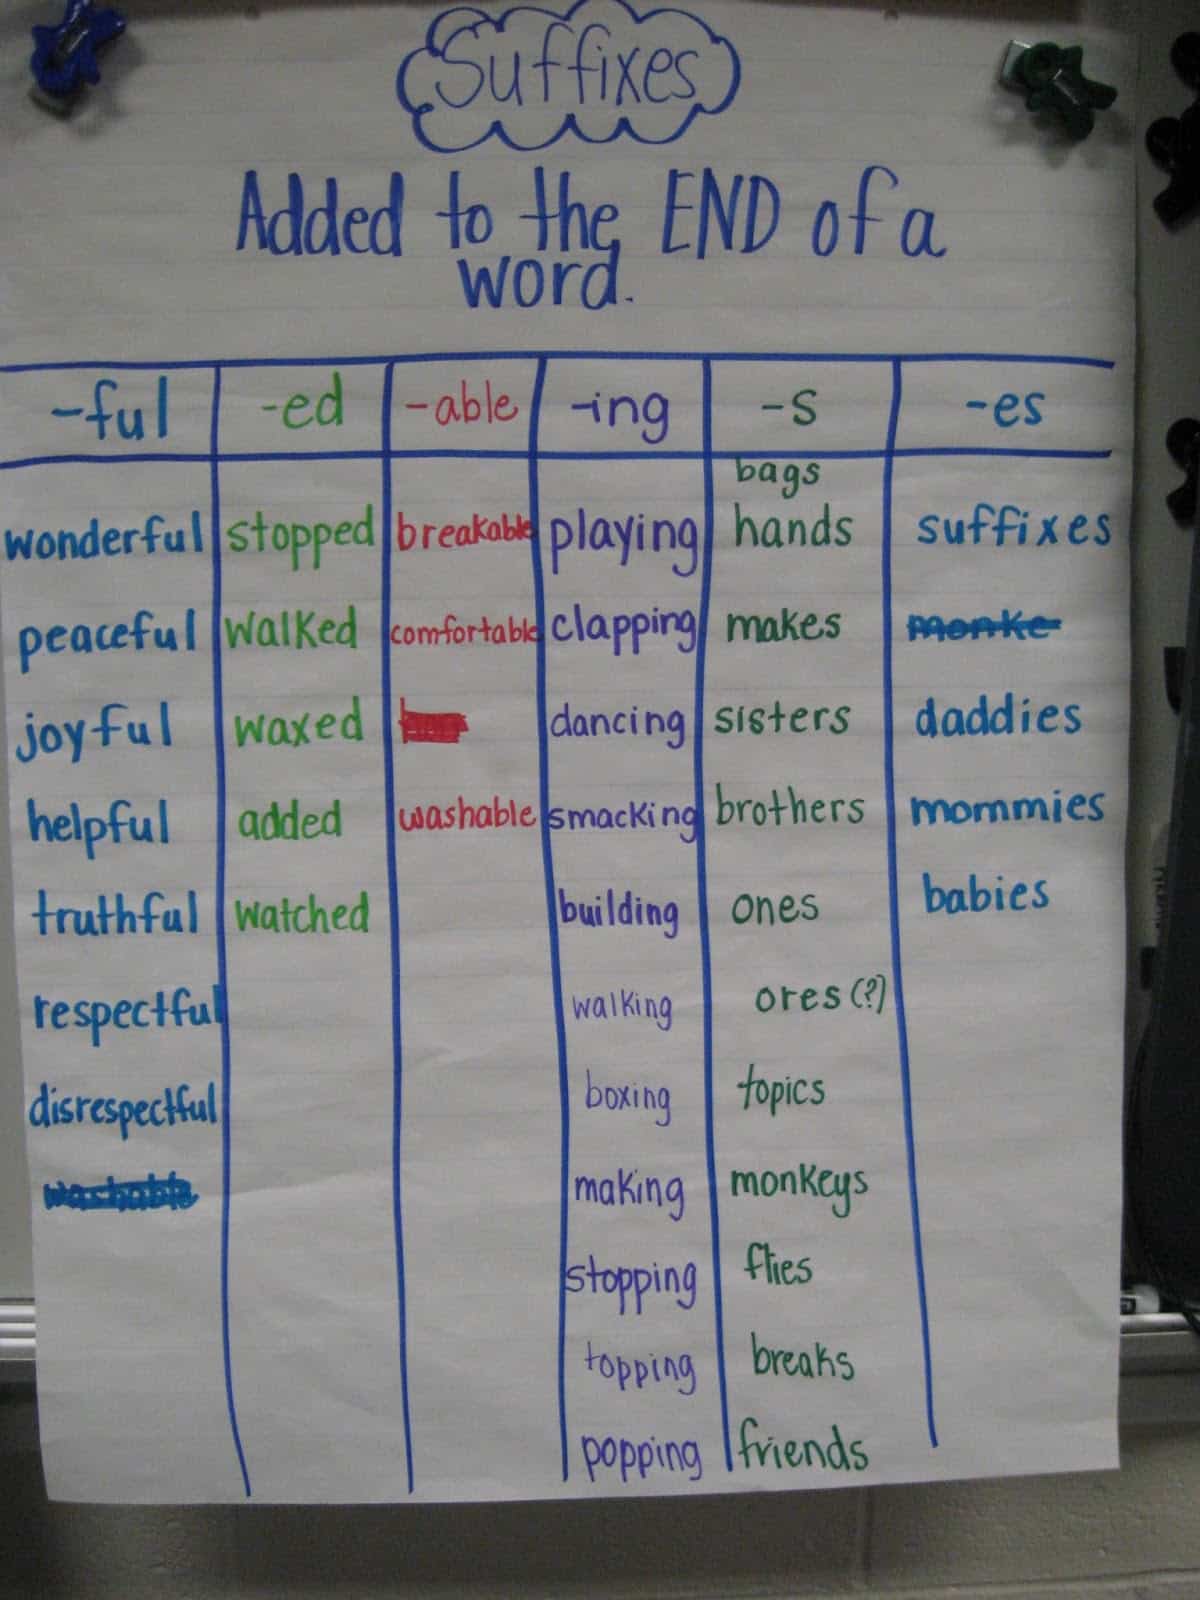 Suffixes
Added to the END of a
word.
-ful -ed -able -ing -s -es
bags
wonderful stopped breakable playing hands suffixes
peaceful walked comfortable clapping makes monke
joyful waxed dancing sisters daddies
helpful added washable smacking brothers mommies
truthful watched building ones babies
respectful walking ores (?)
disrespectful boxing topics
washable making monkeys
stopping flies
topping breaks
popping friends